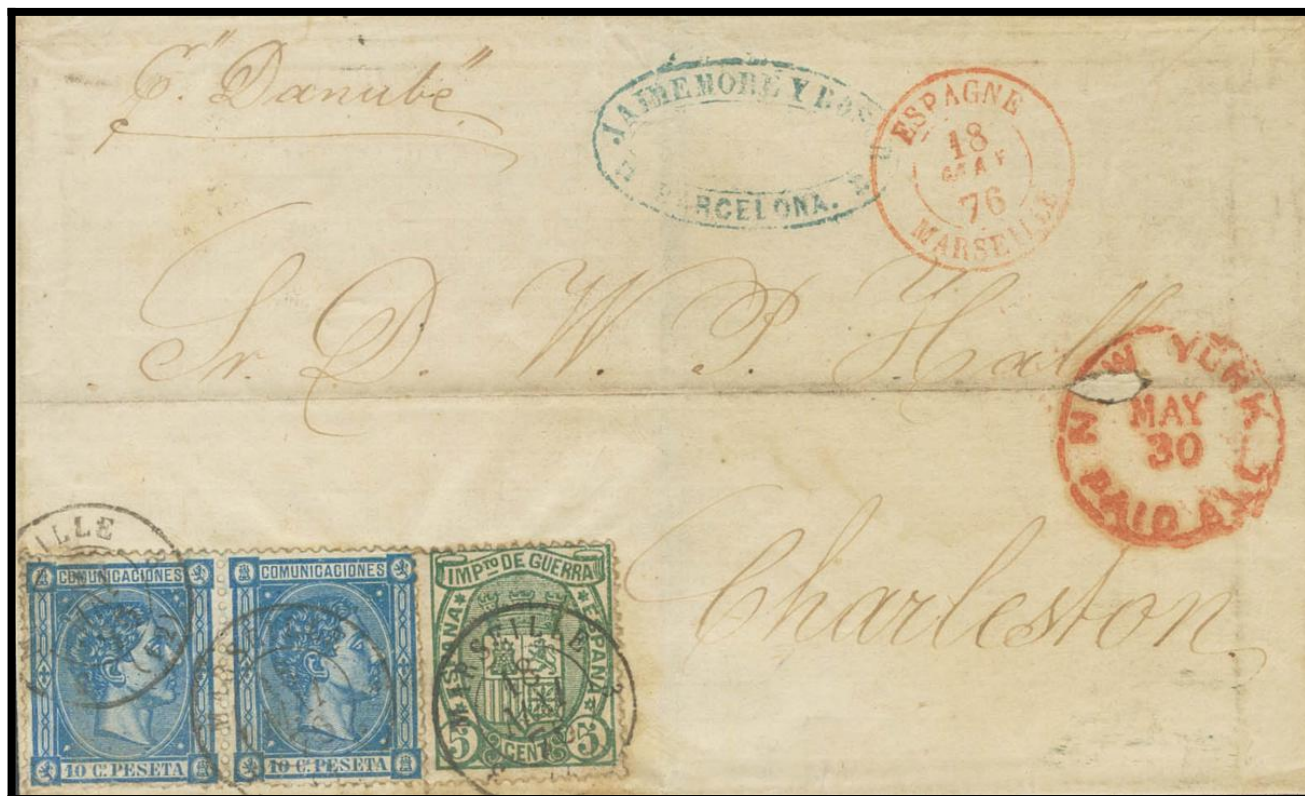 "Danube"
JAIME MORE Y BOSCH
BARCELONA.
ESPAGNE
18
MAI
76
MARSEILLE
Sr. D. W. P. Hall
NEW YORK
MAY
30
PAID ALL
Charleston
MARSEILLE
COMUNICACIONES
10 Cs. PESETA
MARSEILLE
COMUNICACIONES
10 Cs. PESETA
IMPto DE GUERRA
ESPAÑA ESPAÑA
MARSEILLE
18
5 CENTs 5